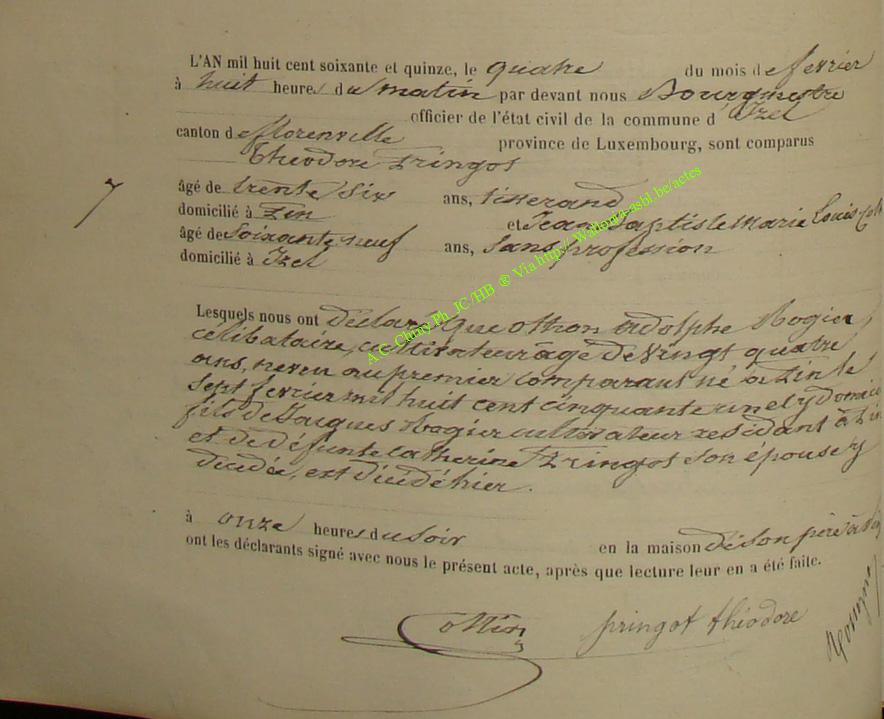 L'AN mil huit cent soixante et quinze, le quatre du mois de fevrier
à huit heures du matin par devant nous Bourgmestre
officier de l'état civil de la commune d Izel
canton de florenville province de Luxembourg, sont comparus
théodore Pringot
7 âgé de trente six ans, tisserand
domicilié à Pin et Jean Baptiste Marie Louis
âgé de Soixante neuf ans, Sans profession
domicilié à Izel
Lesquels nous ont déclaré que othon adolphe Rogier
célibataire, cultivateur agé de vingt quatre
ans, neveu au premier comparant né à Pin le
sept fevrier mil huit cent cinquante un et y
fils de Jacques Rogier cultivateur residant à
et de défunte catherine Pringot son épouse y
décédée, est décédé hier.
à onze heures du soir en la maison de son père à
ont les déclarants signé avec nous le présent acte, après que lecture leur en a été faite.
pringot théodore
A.C. Chiny Ph JC/HB @ Via http://Wallonia-asbl.be/actes